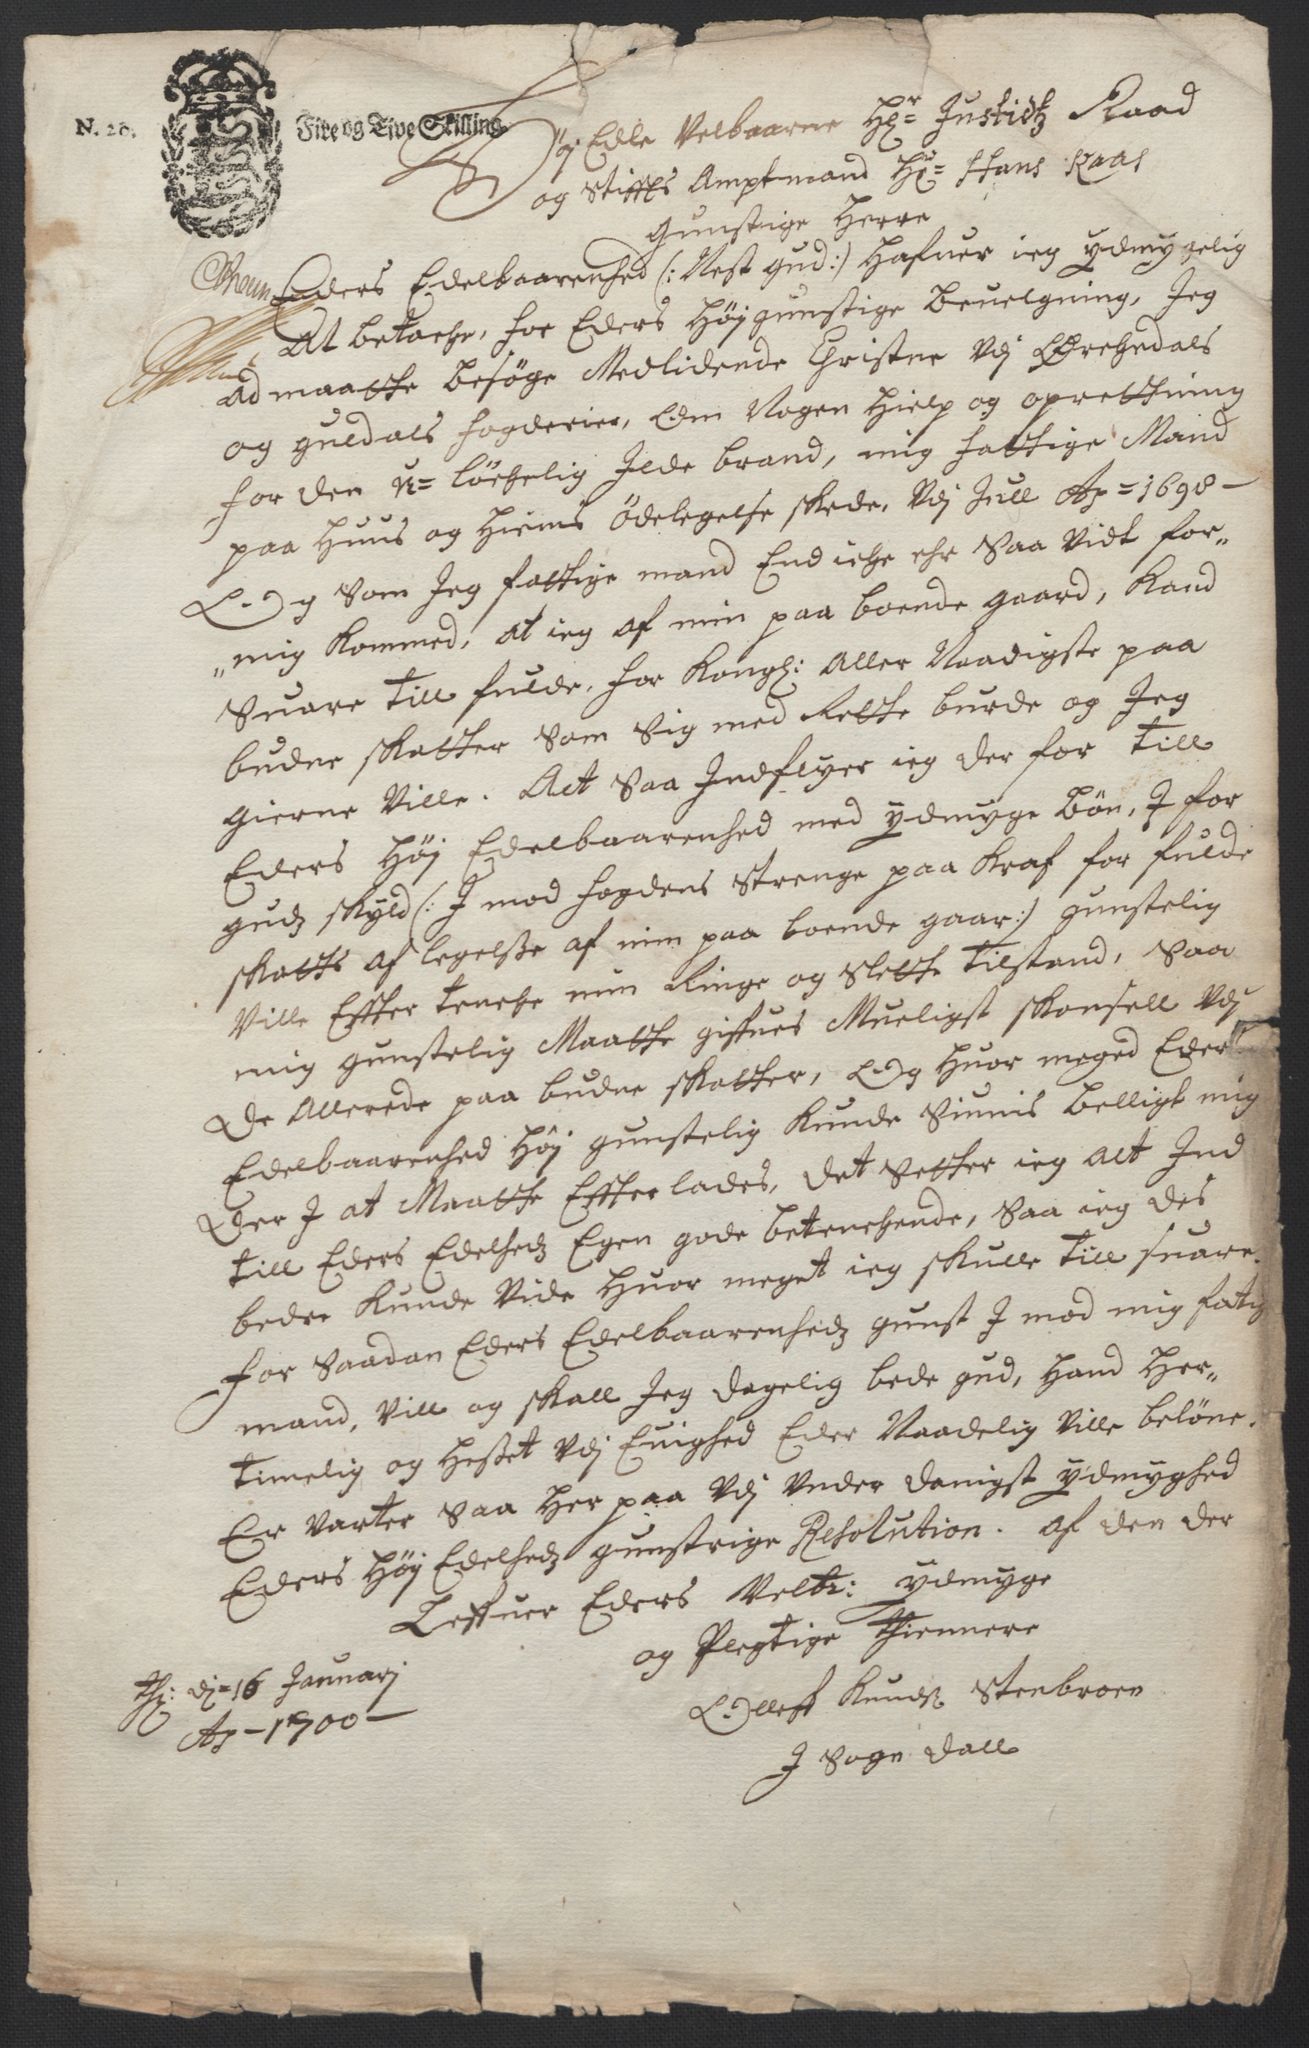 N. 20.
Fire og Tive Skilling
Høy Edle Velbaarne Hr= Justietz Raad
og Stiffts Amptmand Hr= Hans Kaas
Gunstige Herre
Eders Edelbaarenhed (: Nest gud :) hafuer ieg ydmygelig
At betache, for Eders Høy gunstige beuelgning, Jeg
ad maatte besøge Medlidende Christne Vdj Ørchedals
og guldals fogderier, Om Nogen hielp og oprettning
for den U= löchelig Ilde brand, mig fattige Mand
paa Huus og Hiems ödelegelse skede, Vdj Jull Ao= 1698 –
Og Som Jeg fattige mand End iche ehr Saa Vidt for„
„mig kommed, at ieg af min paa boende gaard, kand
Suare till fulde, for Kongl: Aller Naadigste paa
budne skatter Som Sig med Rette burde og Jeg
gierne Ville. Alt Saa Indflyer ieg der for till
Eders Høy Edelbaarenhed med ydmyge bön, I for
gudz skyld (: I mod fogdens Strenge paa kraf for fulde
skatts af legelsse af min paa boende gaar :) gunstelig
Ville Effter tenche min Ringe og Slette tilstand, Saa
mig gunstelig Maatte giffues Mueligst skonsell Vdj
de Allerede paa budne skatter, Og huor meged Eders
Edelbaarenhed Høy gunstelig kunde Siunis belligt mig
der I at Maatte Effterlades, det Setter ieg alt Ind
till Eders Edelhedz Egen gode betenchende, Saa ieg des
bedre kunde Vide huor meget ieg skulle till suare.
for Saadan Eders Edelbaarenhedz gunst I mod mig fatig
mand, Vill og skall Jeg dagelig bede gud, hand Her„
timelig og hisset Vdj Euighed Eder Naadelig Ville belöne.
Er Varter Saa her paa Vdj Vnder danigst ydmyghed
Eders Høy Edelhedz gunstrige Resolution. af den der
Leffuer Eders Velb: ydmyge
og Plegtige thiennere
Olleff knudz Stenbroen
I Sogn dall
Th: dj= 16 Januarj
Ao – 1700 –